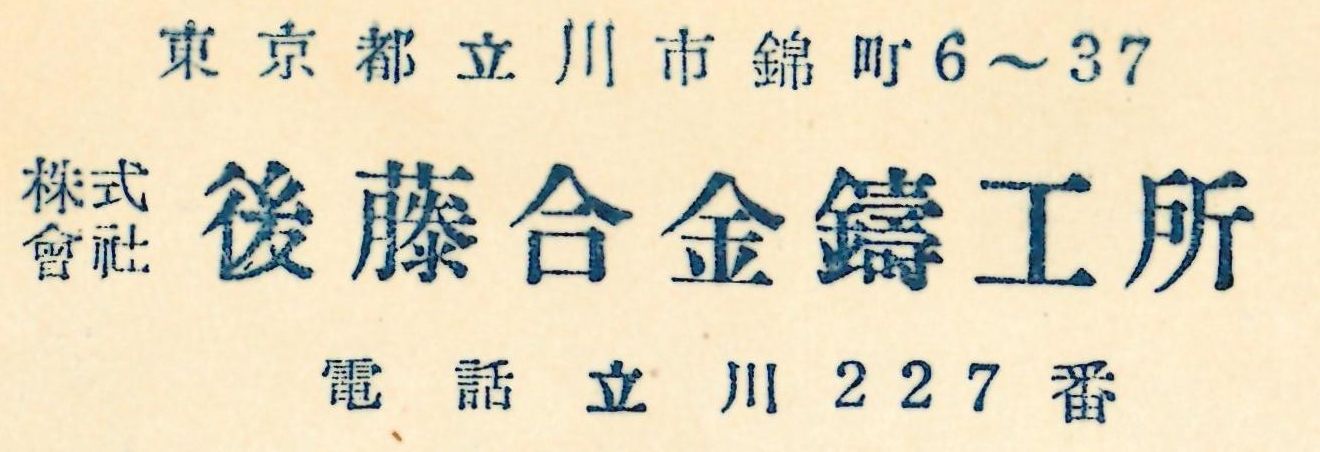 東京都立川市錦町6～37
株式會社 後藤合金鑄工所
電話立川227番